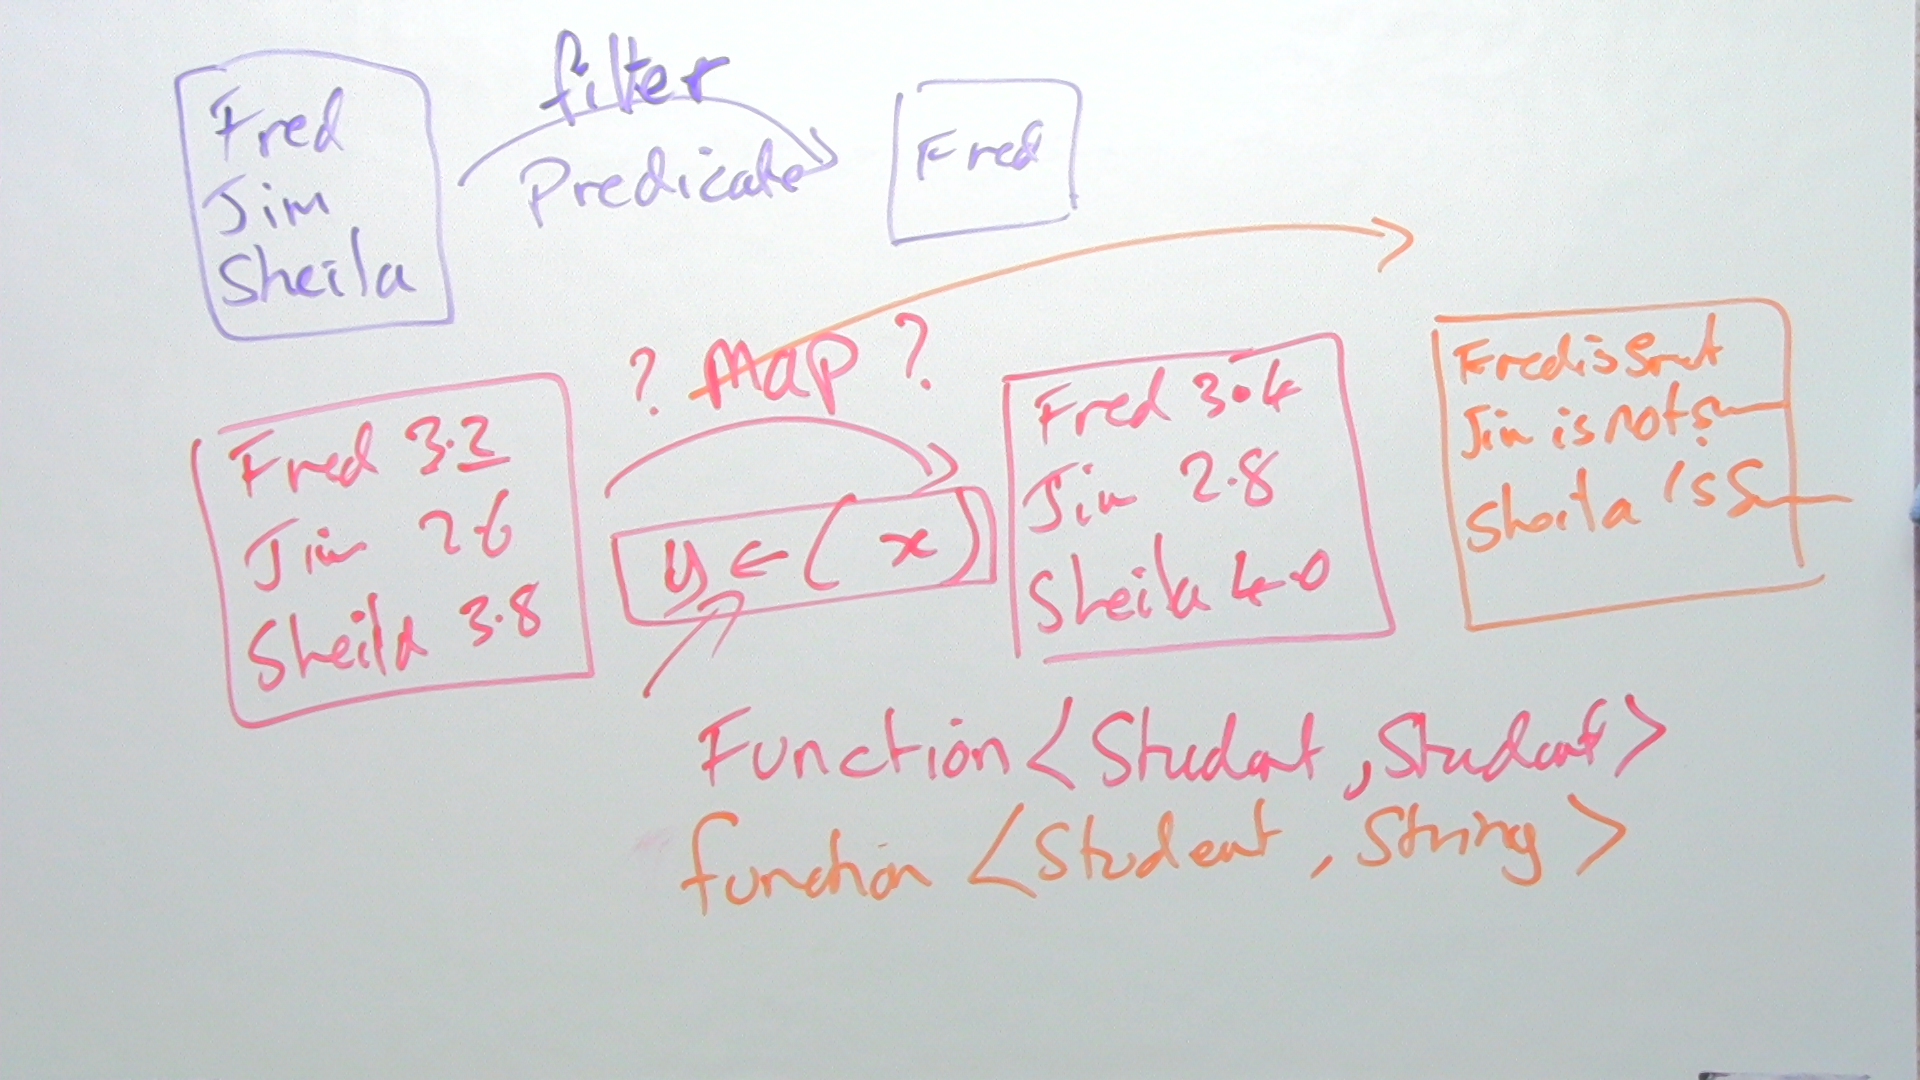 filter
Fred
Jim
Sheila
Predicate
Fred
? Map ?
Fred 3.2
Jim 2.6
Sheila 3.8
y ← ( x )
Fred 3.4
Jim 2.8
Sheila 4.0
Fred is
Jim is not
Sheila is
Function < Student , Student >
function < Student , String >